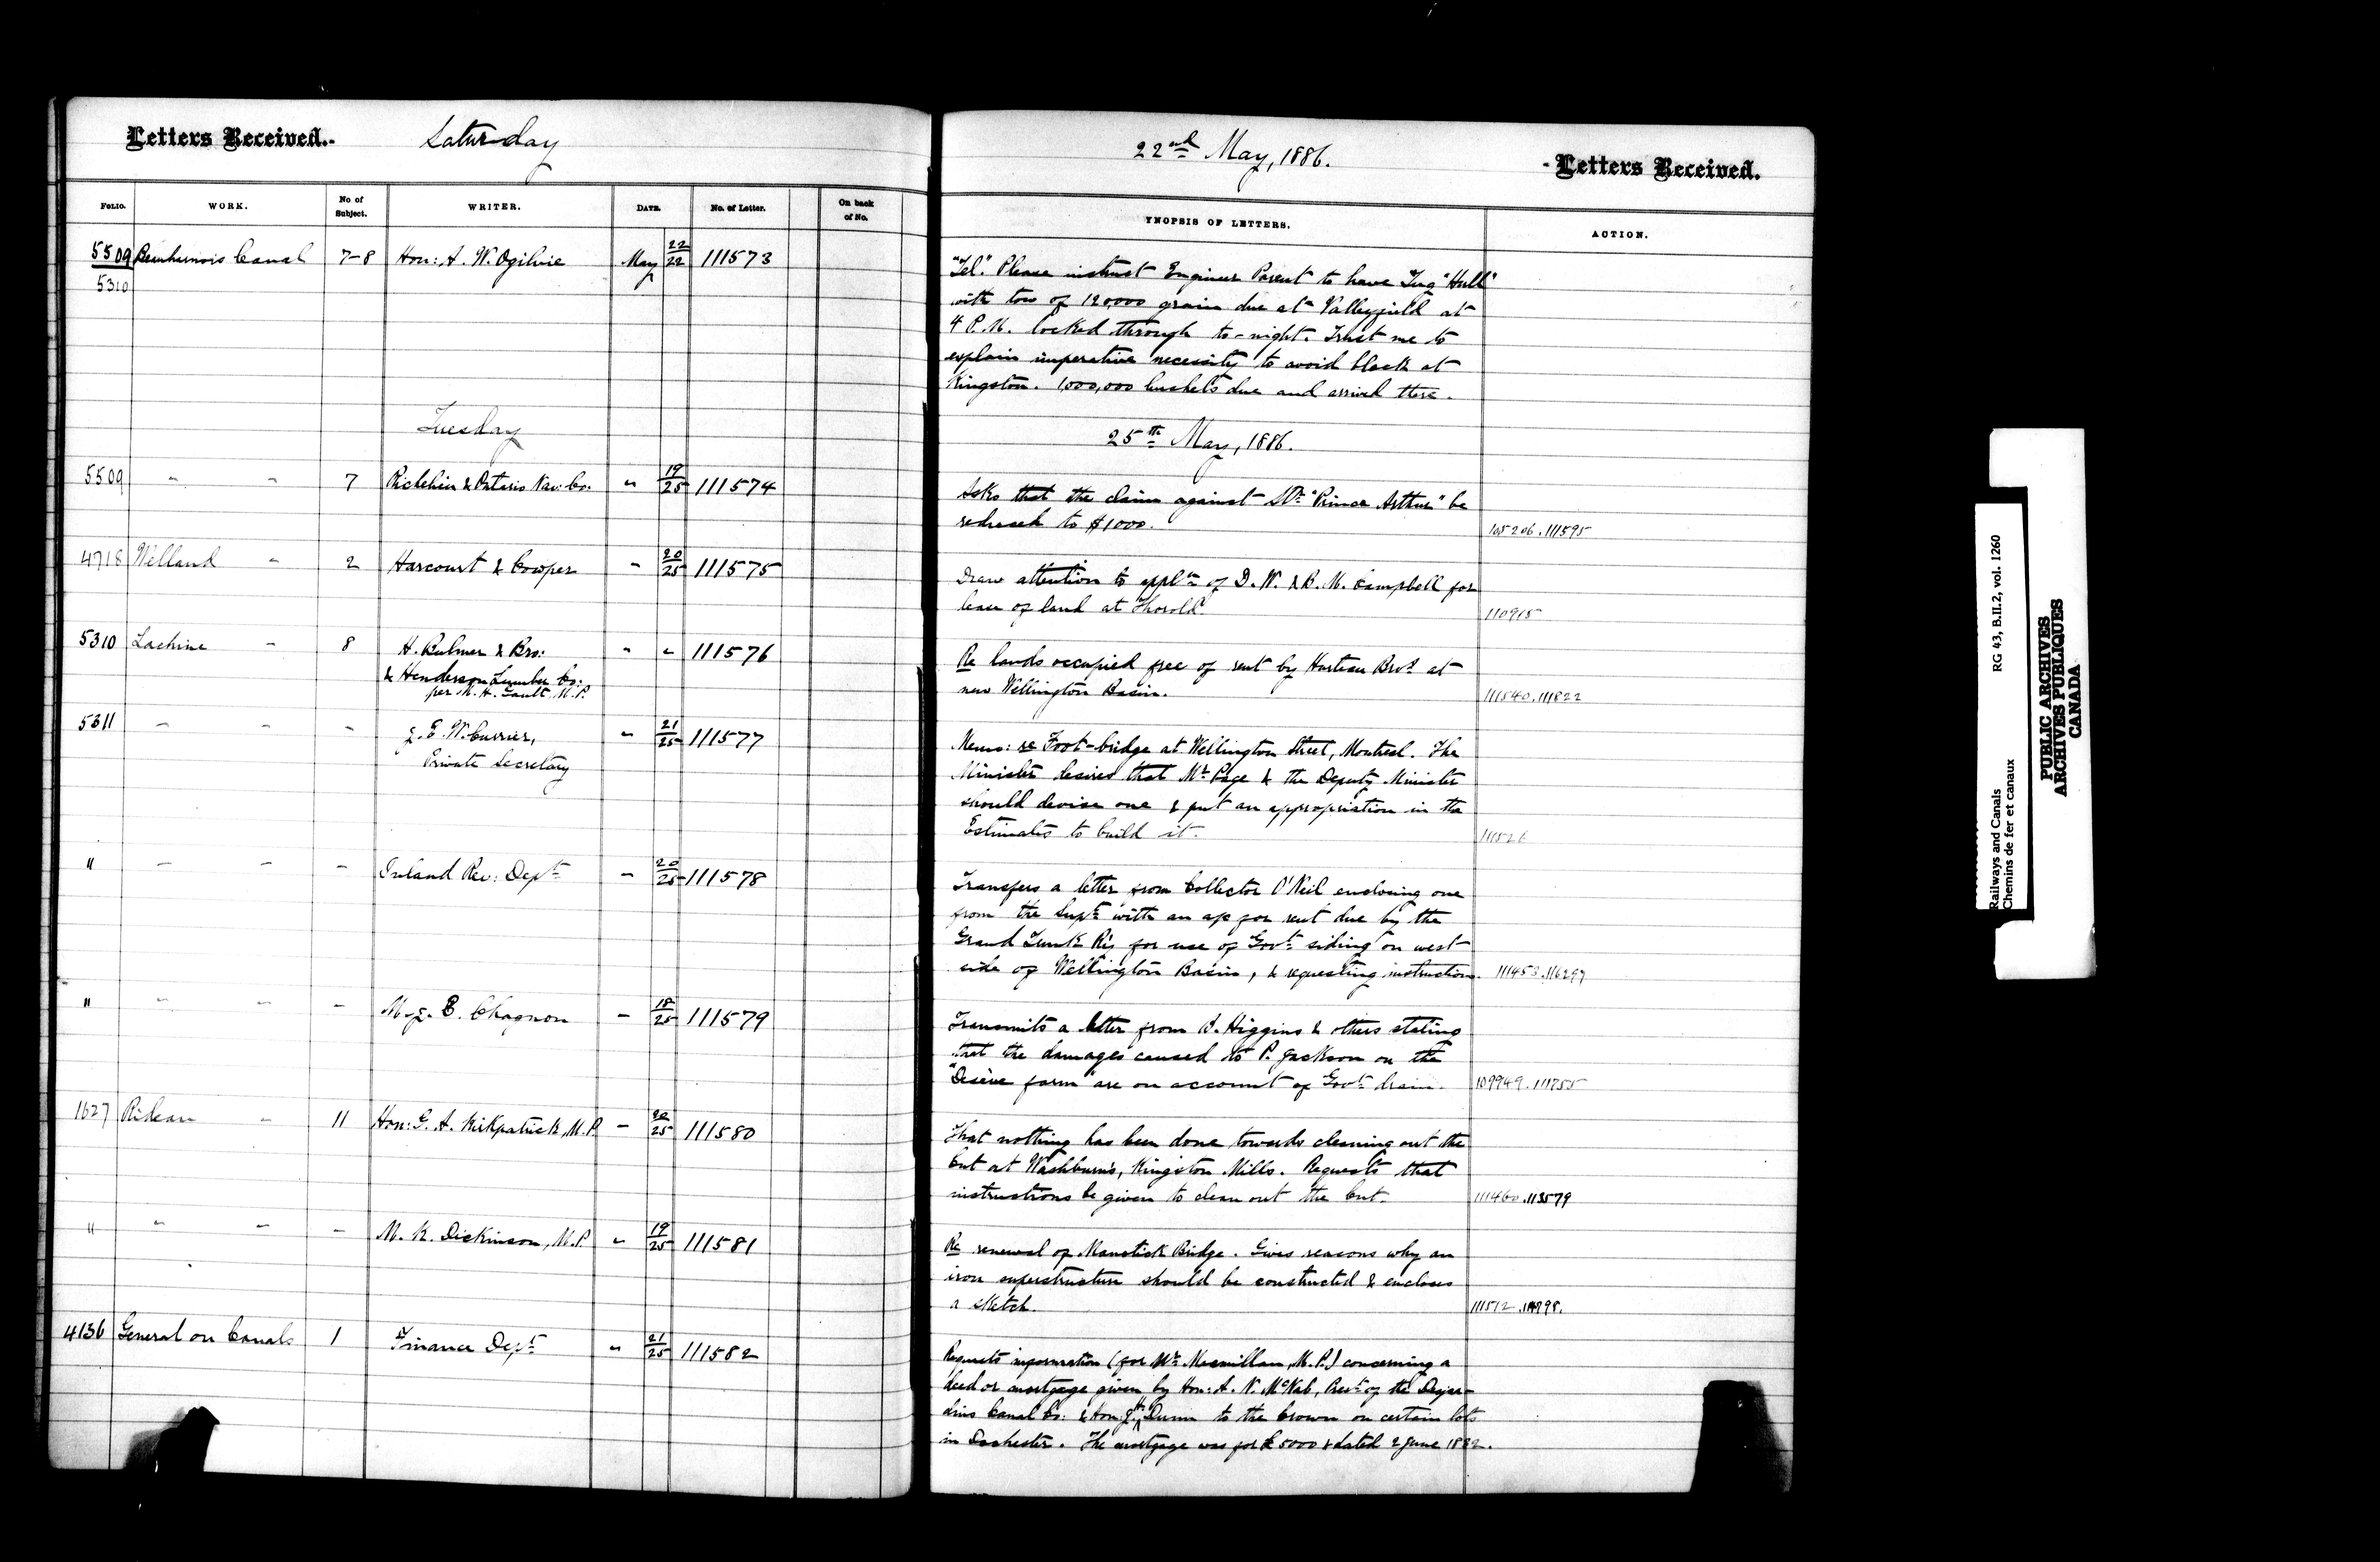 Letters Received. Saturday
22nd May, 1886. Letters Received.
FOLIO. WORK. No of Subject. WRITER. DATE. No. of Letter. On back of No.
YNOPSIS OF LETTERS. ACTION.
5509 Beauharnois Canal 7-8 Hon: A. W. Ogilvie May 22/22 111573
5310
"Tel." Please instruct Engineer Parent to have Tug "Hull"
with tow of 120000 grain due at Valleyfield at
4 P.M. locked through to-night. Trust me to
explain imperative necessity to avoid block at
Kingston. 1,000,000 bushels due and arrived there.
Tuesday
25th May, 1886.
5509 " " 7 Richelieu & Ontario Nav: Co. " 19/25 111574
Asks that the claim against Str. "Prince Arthur" be
reduced to $1000. 105206.111595
4718 Welland " 2 Harcourt & Cowper " 20/25 111575
Draw attention to appln of D. W. & B. M. Campbell for
lease of land at Thorold. 110915
5310 Lachine " 8 H. Bulmer & Bro: " " 111576
& Henderson Lumber Co:
per M. H. Gault, M.P.
Re lands occupied free of rent by Hurteau Bros at
new Wellington Basin. 111540.111822
5311 " " " J. E. W. Currier, " 21/25 111577
Private Secretary
Memo: re Foot-bridge at Wellington Street, Montreal. The
Minister desires that Mr. Page & the Deputy Minister
should devise one & put an appropriation in the
Estimates to build it. 111526
" " " " Inland Rev: Dept " 20/25 111578
Transfers a letter from Collector O'Neil enclosing one
from the Supt with an a/c for rent due by the
Grand Trunk Ry for use of Govt siding on west
side of Wellington Basin, & requesting instruction. 111453.116297
" " " " M. J. E. Chagnon " 18/25 111579
Transmits a letter from Higgins & others stating
that the damages caused to P. Jackson on the
farm are on account of Govt drain. 109949.111755
1627 Rideau " 11 Hon: G. A. Kirkpatrick, M.P. " 20/25 111580
That nothing has been done towards cleaning out the
Cut at Washburn's, Kingston Mills. Requests that
instructions be given to clean out the Cut. 111460.113579
" " " " M. K. Dickinson, M.P. " 19/25 111581
Re renewal of Manotick Bridge. Gives reasons why an
iron superstructure should be constructed & encloses
a sketch. 111512
4136 General on Canals 1 Finance Dept " 21/25 111582
Requests information (for Mr. Macmillan, M.P.) concerning a
deed or mortgage given by Hon: A. N. McNab, Prest of the Desjar-
dins Canal Co: & Hon: J. H. Dunn to the Crown on certain lots
in Dochester. The mortgage was for £5000 & dated 2 June 1832.
Railways and Canals RG 43, B.II.2, vol. 1260
Chemins de fer et canaux
PUBLIC ARCHIVES
ARCHIVES PUBLIQUES
CANADA